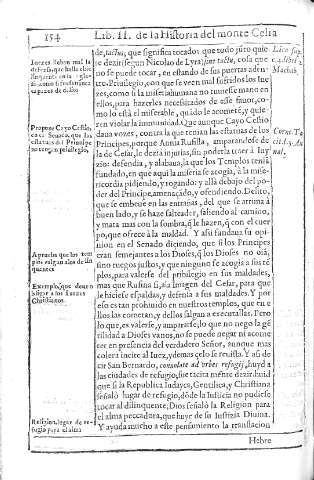 154
Lib. II. de la Historia del monte Celia
de, tactus, que significa tocado: que todo juro quie
re dezir (segun Nicolao de Lyra) sine tactu, cosa que
no se puede tocar, en estando de sus puertas aden-
to. Privilegio, con que se veen mal sufridos los jue
zes, como si la miseria humana no tuuiesse mano en
ellos, para hazerles necesitados de esse fauor, co-
mo lo està el miserable, quãdo le acomete, y quie-
ren violar la inmunidad. Que aunque Cayo Cestio
daua vozes, contra la que tenian las estatuas de los
Principes, porque Annia Rufilla, amparandose de
la de Cesar, le dezia injurias, sin poderla traer à juy
zio: defendia, y alabaua, la que los Templos teniã
fundado, en que aqui la miseria se acogia, à la mise-
ricordia pidiendo, y rogando: y allà debajo del po-
der del Principe, amenaçado, y ofendiendo. Delito,
que se embeue en las entrañas, del que se arrima à
buen lado, y se haze salteador, saliendo al camino,
y mata mas con la sombra, q̃ le hazen, q̃ con el cuer
po, que ofrece à la maldad. Y assi fundaua su opi-
nion en el Senado diciendo, que si los Principes
eran semejantes à los Dioses, q̃ los Dioses no oiã,
sino ruegos justos, y que ninguno se acogia à sus tẽ
plos, para valerse del pribilegio en sus maldades,
mas que Rufina si, ala Imagen del Cesar, para que
le hiciesse espaldas, y defensa à sus maldades. Y por
eso es tan prohibido en nuestros templos, que en e
llos las cometan, y dellos salgan a executallas. Pero
lo que, es valerse, y ampararse, lo que no negò la gẽ
tilidad a Dioses vanos, no se puede negar ni acome
ter en presencia del verdadero Señor, aunque mas
colera incite al Iuez, y demas celo se reuista. Y asi de
cir San Bernardo, consolate ad vrbes refugij, huyd a
las ciudades de refugio, fue tacita mente dezir, huid
que si la Republica Iudayca, Gentilica, y Christiana
señalò lugar de refugio, dõde la Iusticia no pudiese
tocar al dilinquente, Dios señalò la Religion para
el alma peccadora, que huye de su Iustizia Diuina.
Y ayuda mucho a este pensamiento la translacion
Hebre
Propone Cayo Cestio,
en el Senado, que las
estatuas del Principe
no tengan priuilegio.
Exemplo, que dan
Christianos.
Religion, lugar de re-
fugio para el alma
Machab.